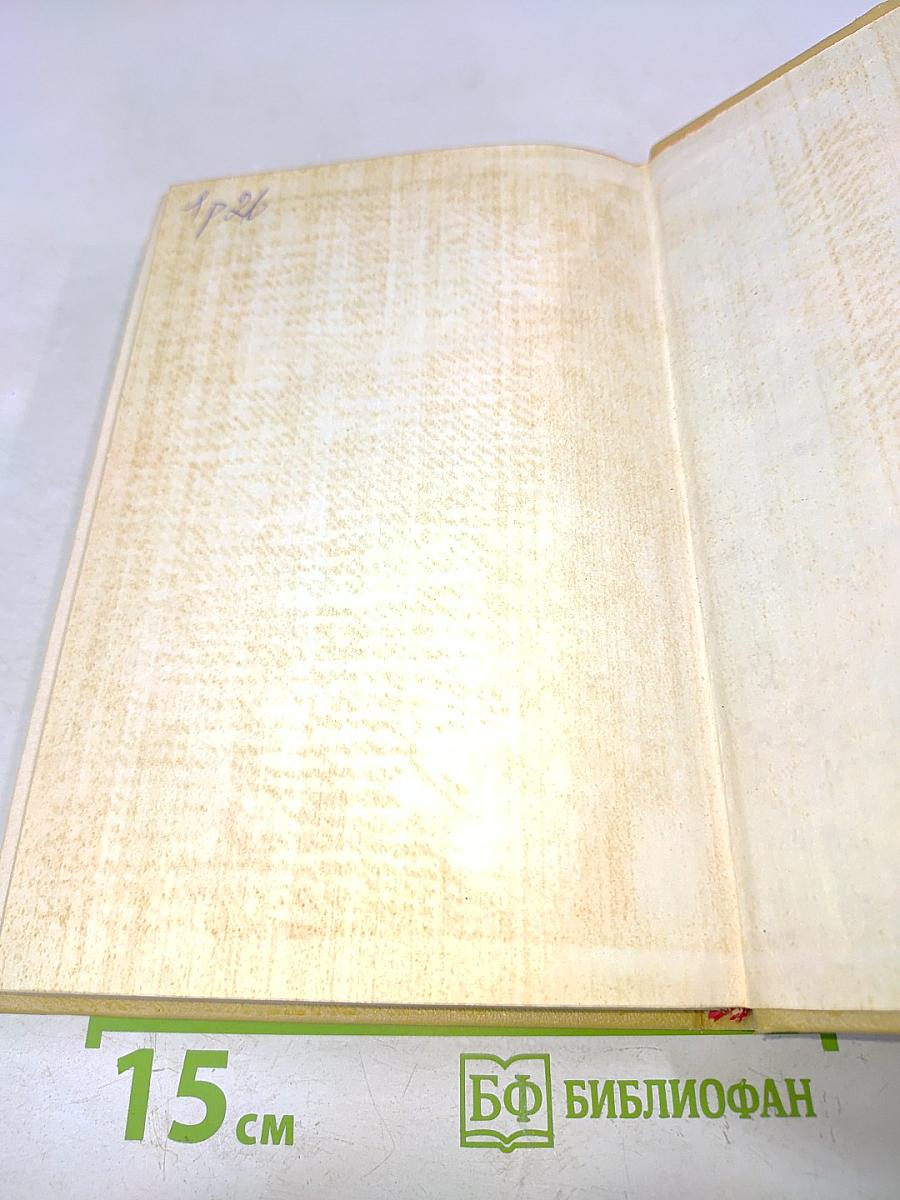 1р26
15 см
БФ БИБЛИОФАН